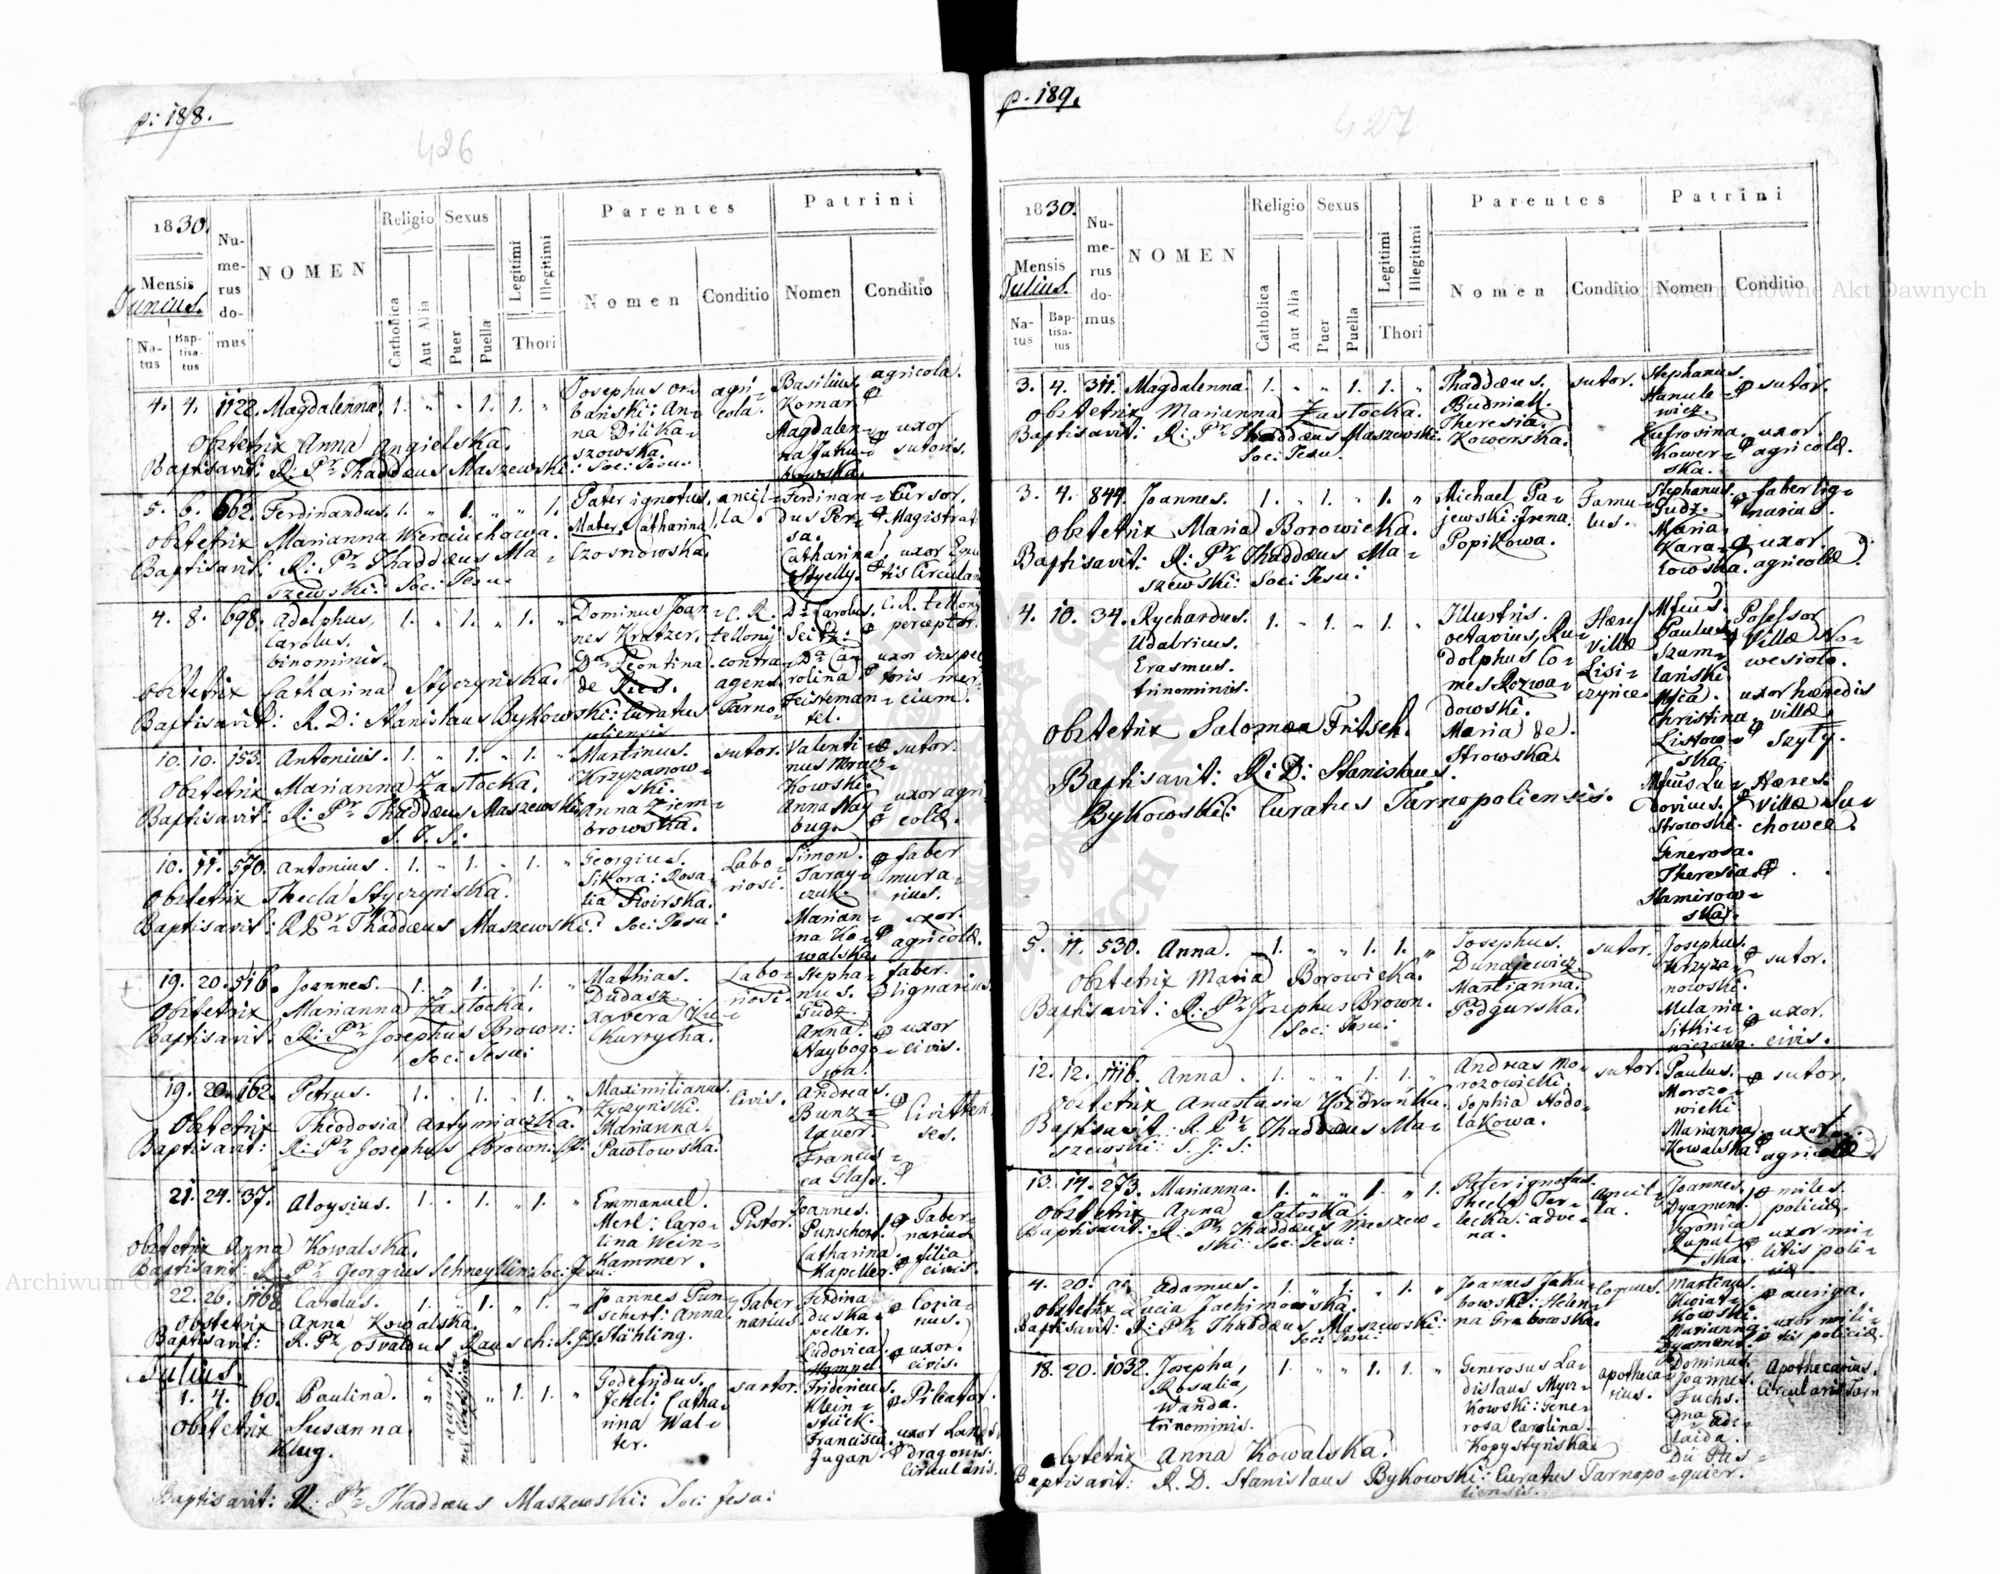 p: 188.
426
1830.
Numerus domus
NOMEN
Religio
Sexus
Legitimi
Illegitimi
Thori
Parentes
Patrini
Mensis
Junius.
Natus
Baptisatus
Catholica
Aut Alia
Puer
Puella
Nomen
Conditio
Nomen
Conditio
4. 4. 1122. Magdalenna. 1. " " 1. 1. "
Josephus
bański: An-
na Dilika-
szowska.
agri-
cola.
Basilius
Komar
Magdalen-
na Jaku-
bowska.
agricola.
uxor
sutoris.
Obstetrix Anna Angielska.
Baptisavit: R: Pr Thaddæus Maszewski: Soc: Jesu:
5. 6. 662. Ferdinandus. 1. " 1. " " 1.
Pater ignotus.
Mater Catharina
Czosnowska.
ancil-
la.
Ferdinan-
dus Per-
sa.
Catharina
Styelly.
Cursor.
Magistrat
uxor Equi
tis Circular
Obstetrix Marianna Wierciuchowa.
Baptisavit: R: Pr Thaddæus Ma-
szewski: Soc: Jesu:
4. 8. 698. Adolphus,
Carolus.
binominis.
1. " 1. " 1. "
Dominus Joan-
nes Kretzer.
Da Leontina
de Rees.
C. R.
tellonij
contra-
agens.
Tarno-
poliensis
Ds Carolus.
Seitz:
Da Ca-
rolina
Feisteman-
tel.
C. R. tellonij
perceptor.
uxor inspec
toris mer-
cium.
Obstetrix Catharina Styczyńska.
Baptisavit: R. D: Stanislaus Bykowski: Curatus
10. 10. 153. Antonius. 1. " 1. " 1. "
Martinus.
Krzyzanow-
ski.
Anna Ziem-
browska.
sutor.
Valenti-
nus Mracz-
kowski.
Anna Nay-
bug.
sutor.
uxor agri-
colæ.
Obstetrix Marianna Zastocka.
Baptisavit: R: Pr Thaddæus Maszewski
S. J. S:
10. 11. 570. Antonius. 1. " 1. " 1. "
Georgius.
Sikora: Rosa-
lia Swirska.
Labo-
riosi.
Simon.
Taray-
czuk.
Marian-
na Ko-
walska.
faber
mura-
rius.
uxor.
agricolæ.
Obstetrix Thecla Styczyńska.
Baptisavit: R. Pr Thaddæus Maszewski: Soc: Jesu:
19. 20. 516. Joannes. 1. " 1. " 1. "
Mathias.
Dudasz
Xavera Kie-
Kurrycha.
Labo-
riosi.
Stepha-
nus.
Gudz.
Anna.
Naybogo-
wa.
faber.
lignarius.
uxor
civis.
Obstetrix Marianna Zastocka.
Baptisavit: R: Pr Josephus Brown:
Soc: Jesu:
19. 20. 162. Petrus. 1. " 1. " 1. "
Maximilianus.
Zyczyński.
Marianna.
Pawłowska.
Civis.
Andreas.
Bunz-
lauer.
Francis-
ca Glass.
Civitten-
ses.
Obstetrix Theodosia Artymiaczka.
Baptisavit: R: Pr Josephus Brown:
21. 24. 37. Aloysius. 1. " 1. " 1. "
Emmanuel.
Merl: Caro-
lina Wein-
Kammer.
Pistor.
Joannes.
Punschert.
Catharina.
Kapeller.
Taber-
narius
filia
civis.
Obstetrix Anna Kowalska.
Baptisavit: R. Pr Georgius Schneyllin: Soc: Jesu:
22. 26. 1168. Carolus. 1. " 1. " 1. "
Joannes Pun-
schert: Anna
Stähling.
Taber
narius
Ferdina
dus Ka-
peller.
Ludovica.
Hampel
Coria-
rius.
uxor.
civis.
Obstetrix Anna Kowalska.
Baptisavit: R. Pr Osvaldus Rausch: S. J. S:
Julius.
1. 4. 60. Paulina. " " 1. 1. "
Godefridus.
Jekel: Catha-
rina Wal-
ter.
sartor.
Fridericus.
Klein-
stück.
Francisca.
Gugan.
Pileator.
uxor Lands-
dragonis.
Circularis.
Obstetrix Susanna
Klug.
Baptisavit: R: Pr Thaddæus Maszewski: Soc: Jesu:
p. 189.
427
1830.
Numerus domus
NOMEN
Religio
Sexus
Legitimi
Illegitimi
Thori
Parentes
Patrini
Mensis
Julius.
Natus
Baptisatus
Catholica
Aut Alia
Puer
Puella
Nomen
Conditio
Nomen
Conditio
3. 4. 311. Magdalenna. 1. " " 1. 1. "
Thaddæus.
Budniak.
Theresia.
Kowerska.
sutor.
Stephanus.
Hanule-
wicz.
Eufrosina.
Kower-
ska.
sutor.
uxor.
agricolæ.
Obstetrix Marianna Zastocka.
Baptisavit: R: Pr Thaddæus Maszewski:
Soc: Jesu.
3. 4. 844. Joannes. 1. " 1. " 1. "
Michael Pa-
jewski: Irena.
Popikowa.
Famu-
lus.
Stephanus.
Gudz.
Maria.
Kara-
towska.
faber lig-
narius.
uxor.
agricolæ.
Obstetrix Maria Borowicka.
Baptisavit: R: Pr Thaddæus Ma-
szewski: Soc: Jesu:
4. 10. 34. Rychardus.
Udalricus.
Erasmus.
trinominis.
1. " 1. " 1. "
Illustris.
Octavius, Ru-
dolphus Co-
mes Rozwa-
dowski.
Maria de.
Strowska.
Hæres
Villæ
Lisi-
czynce.
Mfcus.
Paulus.
Szum-
lański.
Mfca.
Christina.
Listow-
ska.
Mfcus Lu-
dovicus.
Strowski.
Generosa.
Theresia.
Hamirow-
ska.
Possessor
Villæ No-
wesioło.
uxor hæredis
villæ.
Szyły.
Hæres.
Villæ Su-
chowce.
Obstetrix Salomea Fritsch.
Baptisavit: R: D: Stanislaus.
Bykowski: Curatus Tarnopoliensis.
5. 11. 530. Anna. 1. " " 1. 1. "
Josephus.
Dunajewicz.
Marianna.
Podgurska.
sutor.
Josephus.
Krzyza-
nowski.
Melania.
Sitkie-
wiczowa.
sutor.
uxor.
civis.
Obstetrix Maria Borowicka.
Baptisavit: R: Pr Josephus Brown.
Soc: Jesu:
12. 12. 1116. Anna. 1. " " 1. 1. "
Andreas Mo-
rozowicki.
Sophia Hodo-
lakowa.
sutor.
Paulus.
Morozo-
wicki
Marianna
Kowalska
sutor.
uxor.
agricolæ
Obstetrix Anastasia Hozdronka.
Baptisavit: R. Pr Thaddæus Ma-
szewski: S. J. S:
13. 14. 273. Marianna. 1. " " 1. " 1.
Pater ignotus.
Thecla Tar-
lecka: adve-
na.
Ancil-
la.
Joannes.
Dyament.
Veronica
Rapal-
ska.
miles
policiæ.
uxor mi-
litis poli-
ciæ
Obstetrix Anna Satoska.
Baptisavit: R. Pr Thaddæus Maszew-
ski: Soc: Jesu:
4. 20. Adamus. 1. " 1. " 1. "
Joannes Jaku-
bowski: Helen-
na Grabowska.
Martinus.
Kwiat-
kowski.
Marianna
Dyament.
auriga.
uxor mili-
tis policiæ.
Obstetrix Lucia Jachimowska.
Baptisavit: R: Pr Thaddæus Maszewski:
Soc: Jesu:
18. 20. 1032. Josepha,
Rosalia,
Wanda.
trinominis.
1. " " 1. 1. "
Generosus La-
dislaus Mycz-
kowski: Gene-
rosa Carolina.
Kopystyńska.
apotheca-
rius.
Dominus.
Joannes.
Fuchs.
Dna Ade-
laida.
Du Pas-
quier.
Apothecarius.
Circularis Tarn
Obstetrix Anna Kowalska.
Baptisavit: R. D. Stanislaus Bykowski: Curatus Tarnopo-
liensis.
Archiwum Główne Akt Dawnych